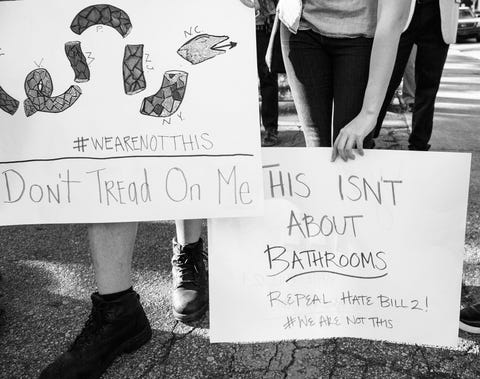 NC
P.
V
M
N.Y.
#WEARENOTTHIS
DON'T TREAD ON ME
THIS ISN'T
ABOUT
BATHROOMS
REPEAL HATE BILL 2!
#WE ARE NOT THIS